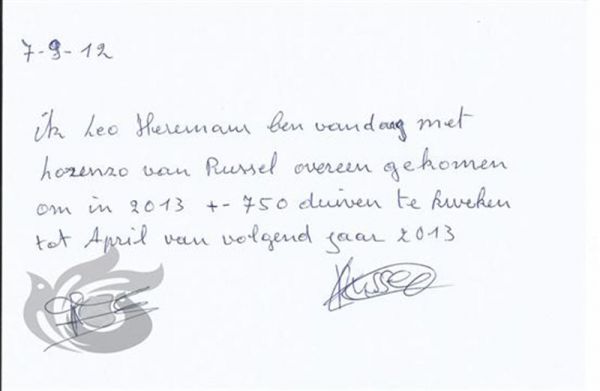 7-9-12
ik Leo Heremans ben vandaag met
Lorenzo van Russel overeen gekomen
om in 2013 +- 750 duiven te kweken
tot April van volgend jaar 2013